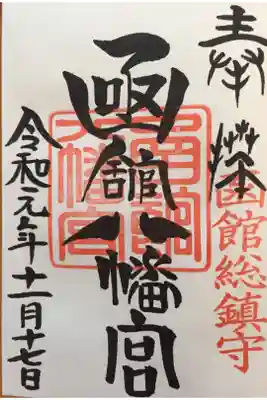 奉拝
函館総鎮守
函館八幡宮
令和元年十一月十七日